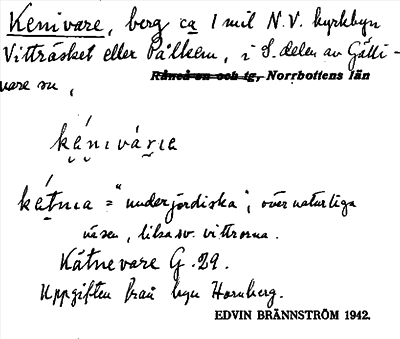 Kenivare, berg ca 1 mil N.V. kyrkbyn
Vitträsket eller Pålkem, i S. delen av Gälli-
Råneå sn och tg, Norrbottens län
vare sn,
kátnıa = "underjordiska", övernaturliga
väsen, liksav. vittrorna.
Kåtnevare G. 29.
Uppgiften från byn Hornberg.
EDVIN BRÄNNSTRÖM 1942.